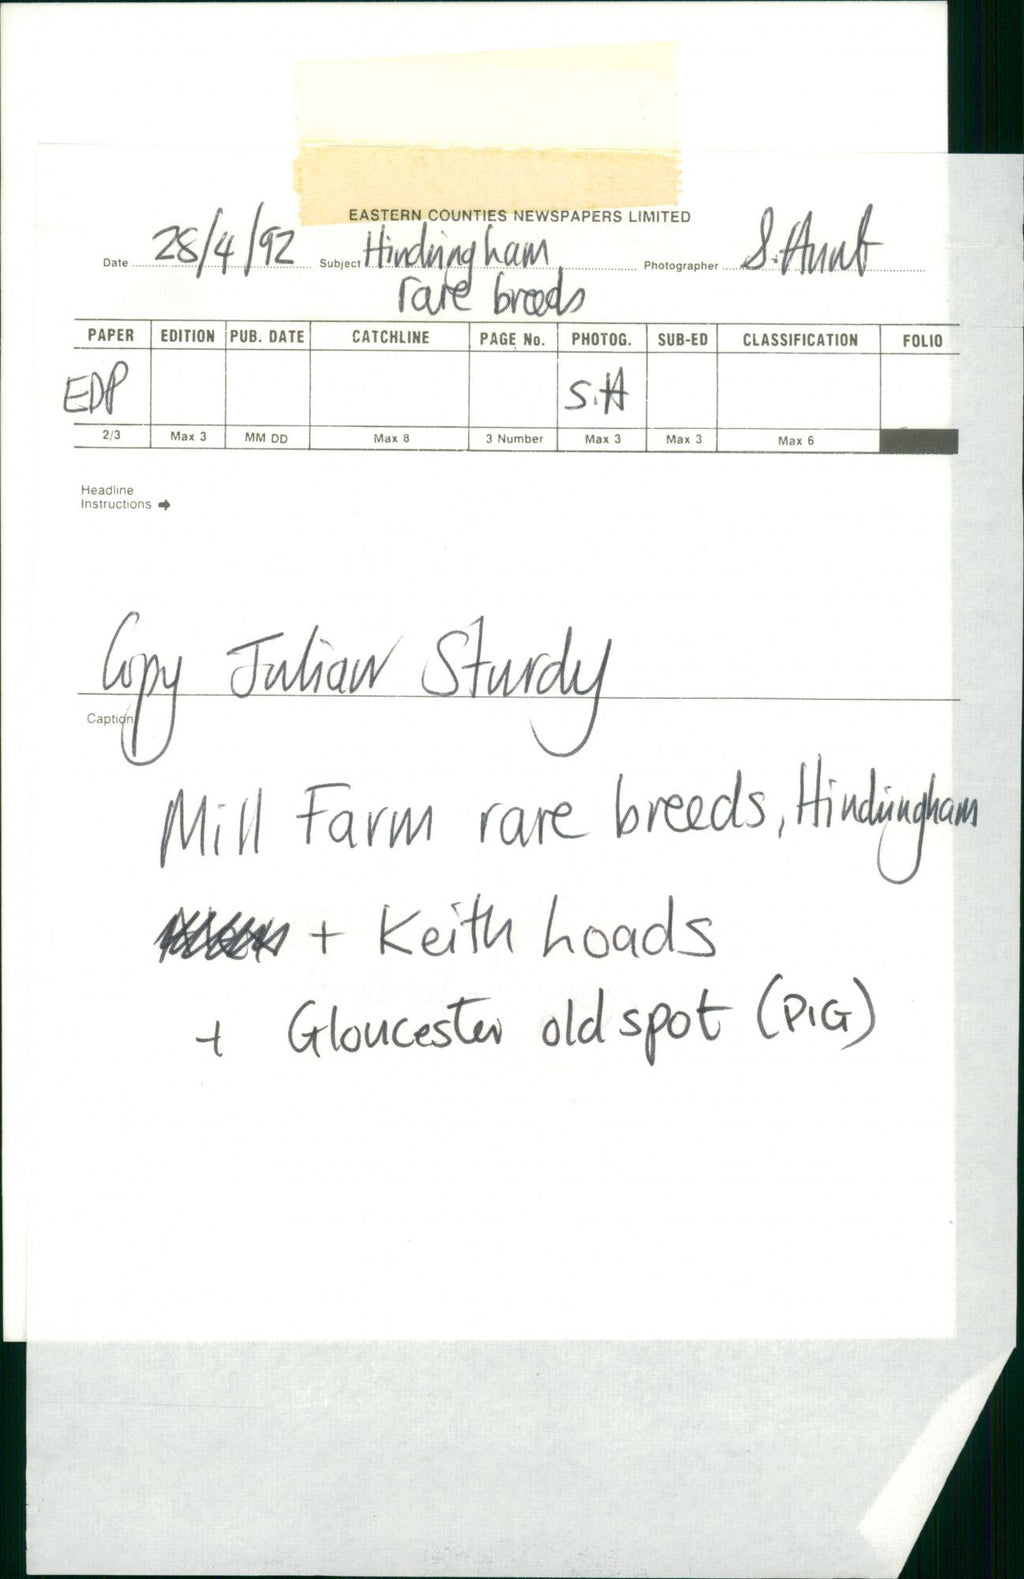 EASTERN COUNTIES NEWSPAPERS LIMITED
Date 28/4/92 Subject Hindringham Photographer S. Hunt
rare breeds
PAPER EDITION PUB. DATE CATCHLINE PAGE No. PHOTOG. SUB-ED CLASSIFICATION FOLIO
EDP S.H
2/3 Max 3 MM DD Max 8 3 Number Max 3 Max 3 Max 6
Headline
Instructions →
Copy Julian Sturdy
Caption
Mill Farm rare breeds, Hindringham
+ Keith Hoads
+ Gloucester old spot (PIG)